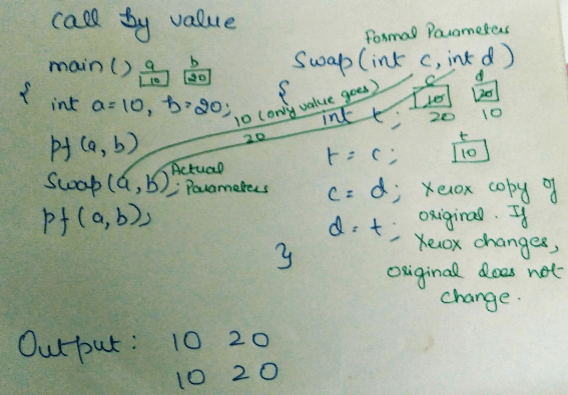 Call By value
main() a b
10 20
{
int a=10, b=20;
pf(a,b)
Swap(a,b);
Actual
Parameters
pf(a,b);
Formal Parameters
Swap(int c, int d)
{
10 (only value goes)
20
int t;
c d
10 20
20 10
t = c;
t
10
c = d;
d = t;
}
Xerox copy of
original. If
Xerox changes,
original does not
change.
Output: 10 20
10 20